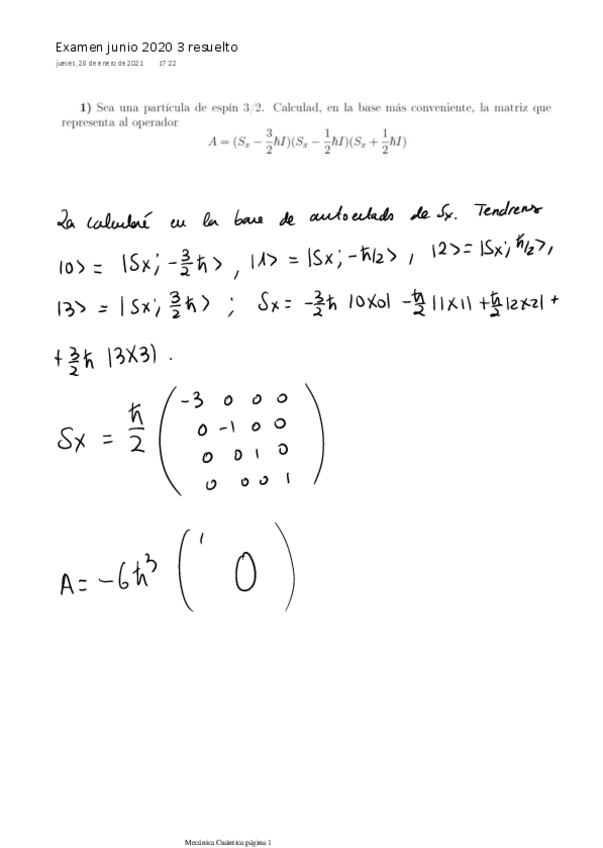 Examen junio 2020 3 resuelto
jueves, 28 de enero de 2021 17:22
1) Sea una partícula de espín 3/2. Calculad, en la base más conveniente, la matriz que
representa al operador
A = (Sₓ − 3/2 ħI)(Sₓ − 1/2 ħI)(Sₓ + 1/2 ħI)
La calcularé en la base de autoestado de Sx. Tendrens
|0> = |Sx; -3/2 ħ>, |1> = |Sx; -ħ/2>, |2> = |Sx; ħ/2>,
|3> = |Sx; 3/2 ħ> ; Sx = -3/2 ħ |0X0| - ħ/2 |1X1| + ħ/2 |2X2| +
+ 3/2 ħ |3X3| .
Sx = ħ/2 ( -3 0 0 0
0 -1 0 0
0 0 1 0
0 0 0 1 )
A = -6ħ³ ( 1 0 )
Mecánica Cuántica página 1